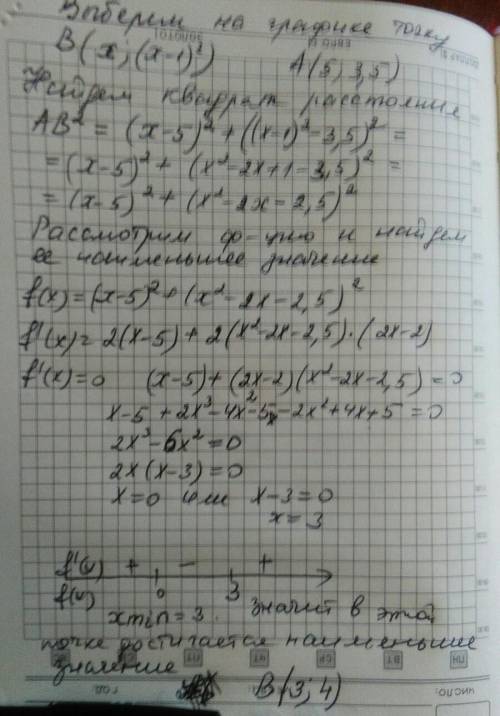 Выберем на графике точку
B(x; (x-1)²) A(5; 3,5)
Найдем квадрат расстояния
AB² = (x-5)² + ((x-1)²-3,5)² =
= (x-5)² + (x²-2x+1-3,5)² =
= (x-5)² + (x²-2x-2,5)²
Рассмотрим ф-цию и найдем
ее наименьшее значение
f(x) = (x-5)² + (x²-2x-2,5)²
f'(x) = 2(x-5) + 2(x²-2x-2,5)·(2x-2)
f'(x)=0 (x-5)+(2x-2)(x²-2x-2,5)=0
x-5+2x³-4x²-5x-2x²+4x+5=0
2x³-6x²=0
2x(x-3)=0
x=0 или x-3=0
x=3
f'(x) + - +
f(x) 0 3
xmin=3. значит в этой
точке достигается наименьшее
значение
B(3; 4)
ПН ВТ СР ЧТ ПТ
ЧИСЛО: ГОД